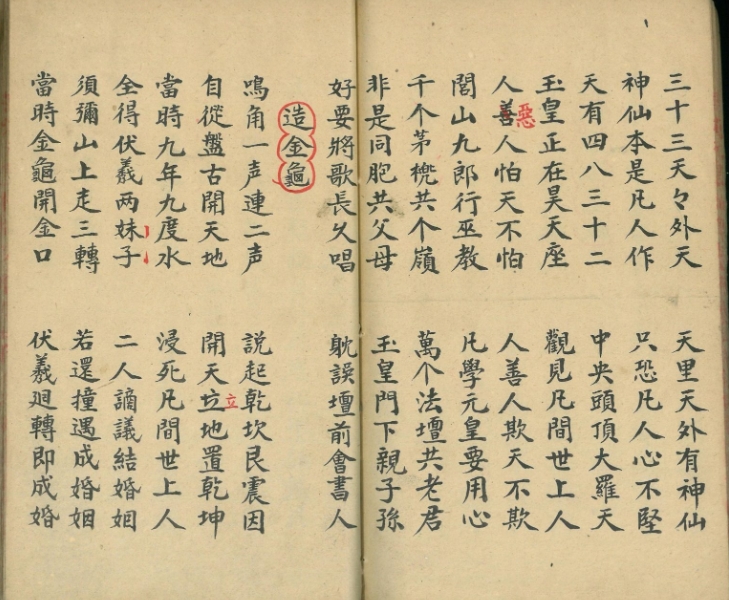 三十三天々外天　天里天外有神仙
神仙本是凡人作　只恐凡人心不堅
天有四八三十二　中央頭頂大羅天
玉皇正在昊天座　觀見凡間世上人
人善惡人怕天不怕　人善人欺天不欺
閭山九郎行巫教　凡學元皇要用心
千个茅共个嶺　萬个法壇共老君
非是同胞共父母　玉皇門下親子孫
好要將歌長久唱　躭誤壇前會書人
造金龜
鳴角一声連二声　說起乾坎艮震因
自從盤古開天地　開天立地置乾坤
當時九年九度水　浸死凡間世上人
全得伏羲两妹子　二人謫議結婚姻
須彌山上走三轉　若還撞遇成婚姻
當時金龜開金口　伏羲廻轉即成婚